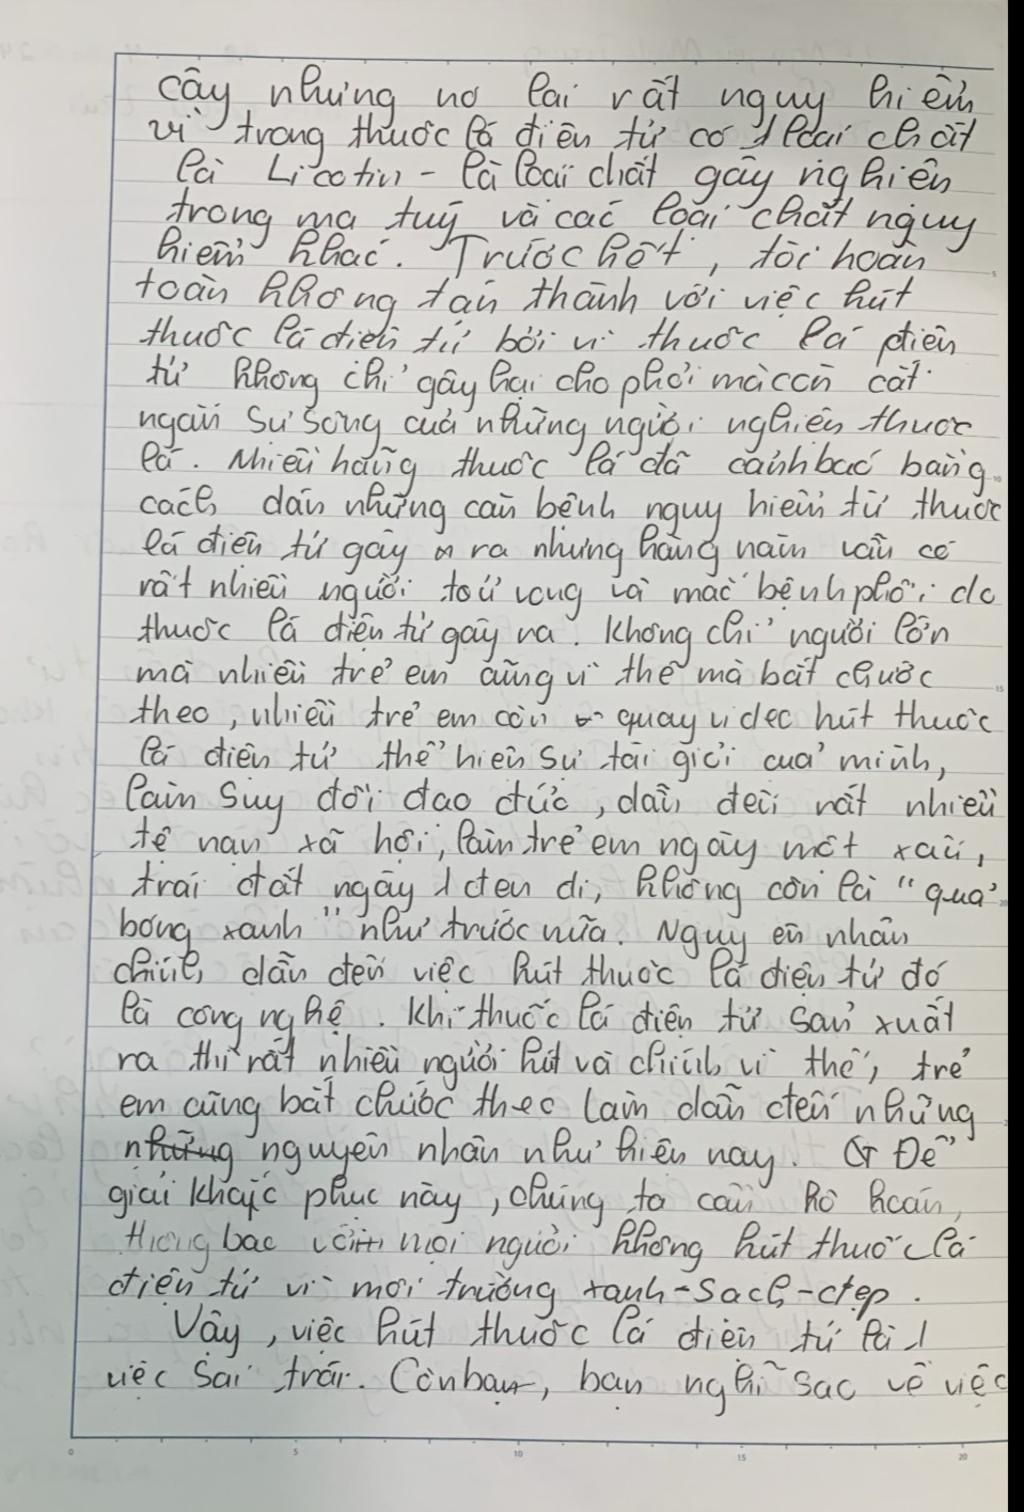 cậy, nhưng nó lại rất nguy hiểm
vì trong thuốc lá điện tử có 1 loại chất
là Licotin - là loại chất gây nghiện
trong ma tuý và các loại chất nguy
hiểm khác. Trước hết, tôi hoàn
toàn không tán thành với việc hút
thuốc lá điện tử bởi vì thuốc lá điện
tử không chỉ gây hại cho phổi mà còn cắt
ngắn sự sống của những người nghiện thuốc
lá. Nhiều hãng thuốc lá đã cảnh báo bằng
cách dán những căn bệnh nguy hiểm từ thuốc
lá điện tử gây ra nhưng hằng năm vẫn có
rất nhiều người tử vong và mắc bệnh phổi do
thuốc lá điện tử gây ra. Không chỉ người lớn
mà nhiều trẻ em cũng vì thế mà bắt chước
theo, nhiều trẻ em còn quay video hút thuốc
lá điện tử thể hiện sự tài giỏi của mình,
làm suy đồi đạo đức, dẫn đến rất nhiều
tệ nạn xã hội, làm trẻ em ngày một xấu,
trái đất ngày 1 đen đi, không còn là "quả
bóng xanh" như trước nữa. Nguyên nhân
chính dẫn đến việc hút thuốc lá điện tử đó
là công nghệ. Khi thuốc lá điện tử sản xuất
ra thì rất nhiều người hút và chính vì thế, trẻ
em cũng bắt chước theo làm dẫn đến những
những nguyên nhân như hiện nay. Để
giải khắc phục này, chúng ta cần hô
mọi người không hút thuốc lá
điện tử vì môi trường xanh-sạch-đẹp.
Vậy, việc hút thuốc lá điện tử là 1
việc sai trái. Còn bạn, bạn nghĩ sao về việc